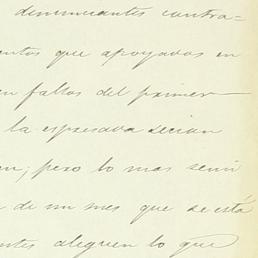 denunciantes contra=
entos que apoyados en
en fallos del primer
la espresada decian
en; pero lo mas sensi
a de un mes que se está
ntes aleguen lo que